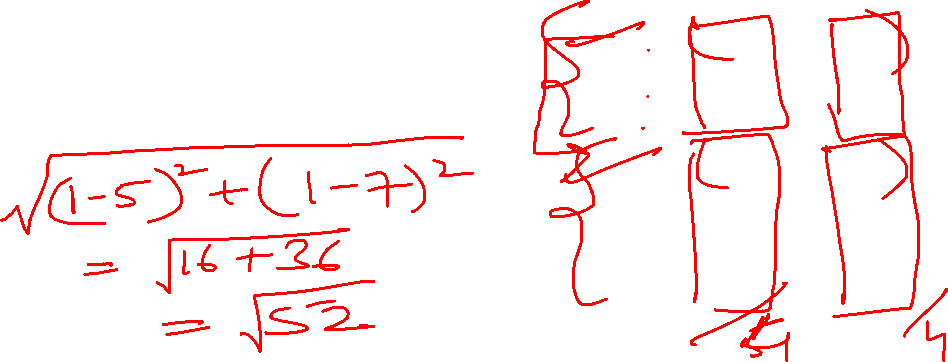 √(1-5)² + (1-7)²
= √16+36
= √52